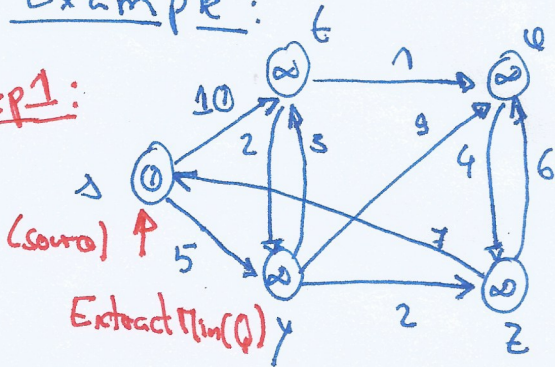 Example:
t
ep1:
∞
1
∞
10
2
3
9
4
6
s
0
(source)
5
7
∞
∞
ExtractMin(Q)
y
2
z